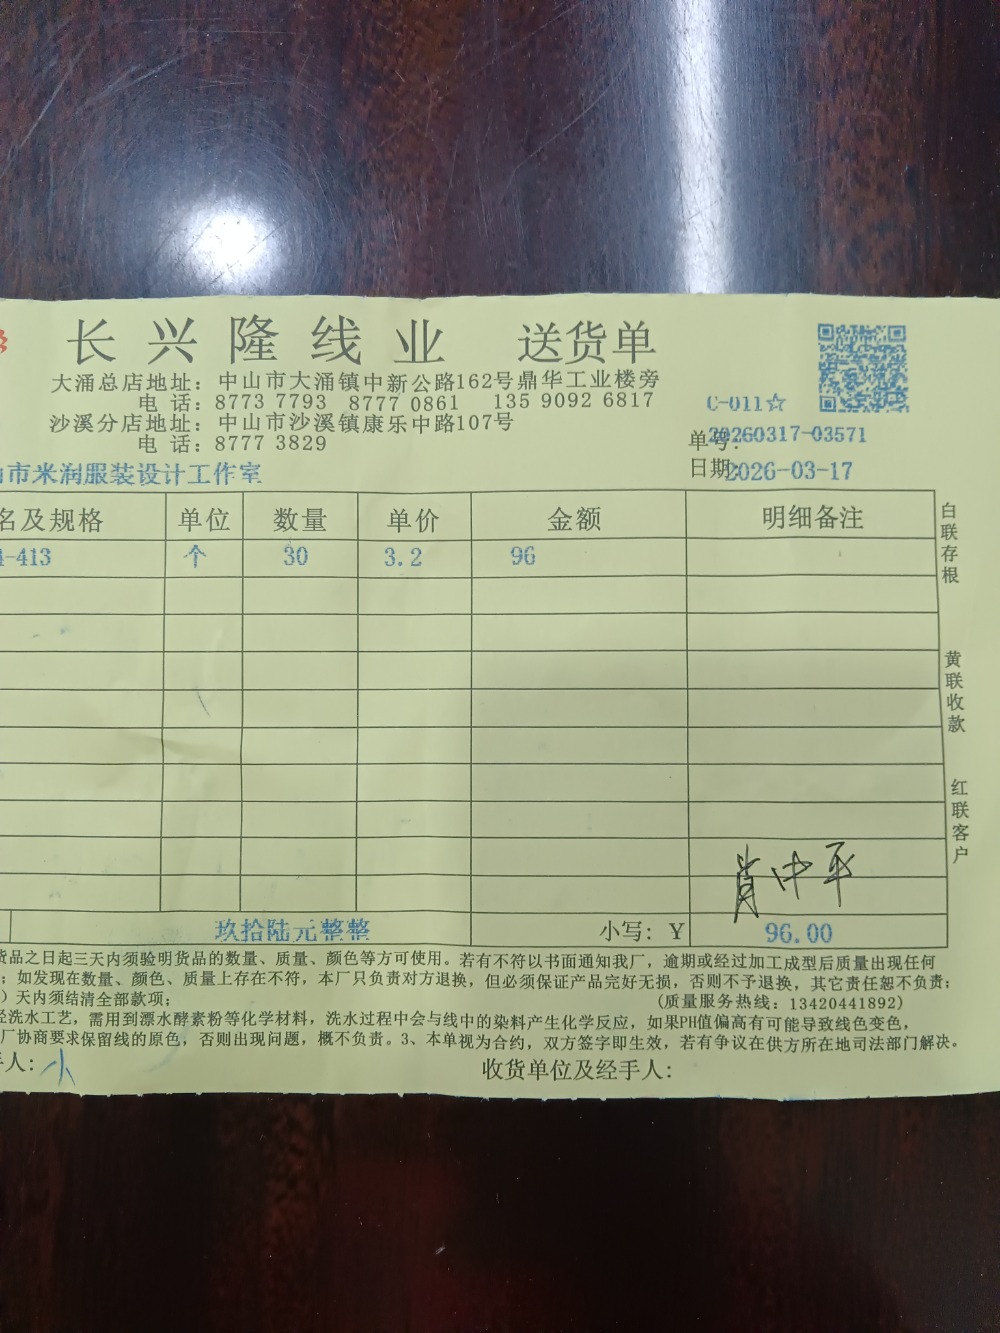 长兴隆线业 送货单
大涌总店地址：中山市大涌镇中新公路162号鼎华工业楼旁
电 话：8773 7793 8777 0861 135 9092 6817
C-011☆
沙溪分店地址：中山市沙溪镇康乐中路107号
单号：20260317-03571
电 话：8777 3829
日期：2026-03-17
市米润服装设计工作室
名及规格 单位 数量 单价 金额 明细备注
-413 个 30 3.2 96
白联存根
黄联收款
红联客户
肖中平
玖拾陆元整整 小写：Y 96.00
货品之日起三天内须验明货品的数量、质量、颜色等方可使用。若有不符以书面通知我厂，逾期或经过加工成型后质量出现任何
；如发现在数量、颜色、质量上存在不符，本厂只负责对方退换，但必须保证产品完好无损，否则不予退换，其它责任恕不负责；
）天内须结清全部款项； (质量服务热线：13420441892)
经洗水工艺，需用到漂水酵素粉等化学材料，洗水过程中会与线中的染料产生化学反应，如果PH值偏高有可能导致线色变色，
厂协商要求保留线的原色，否则出现问题，概不负责。3、本单视为合约，双方签字即生效，若有争议在供方所在地司法部门解决。
手人：小 收货单位及经手人：